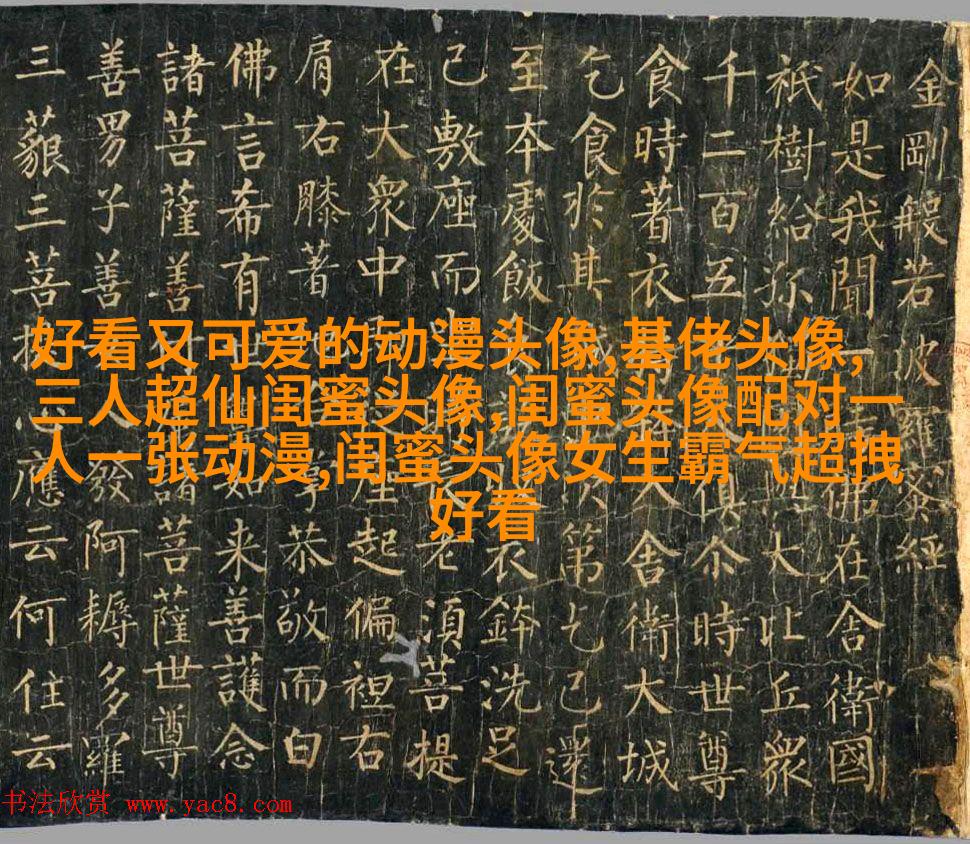 金剛般若波羅蜜經
如是我聞一時佛在舍衛國
祇樹給孤大比丘衆
千二百五人俱尒時世尊
食時著衣入舍衛大城
乞食於其城次第乞已還
至本處飯食衣鉢洗足
已敷座而坐長老須菩提
在大衆中座起偏袒右
肩右膝著地合掌恭敬而白
佛言希有世如来善護念
諸菩薩善諸菩薩世尊
善男子善女人發阿耨多羅
三藐三菩提心應云何住云
好看又可爱的动漫头像,基佬头像,
三人超仙闺蜜头像,闺蜜头像配对一
人一张动漫,闺蜜头像女生霸气超拽
好看
书法欣赏 www.yac8.com